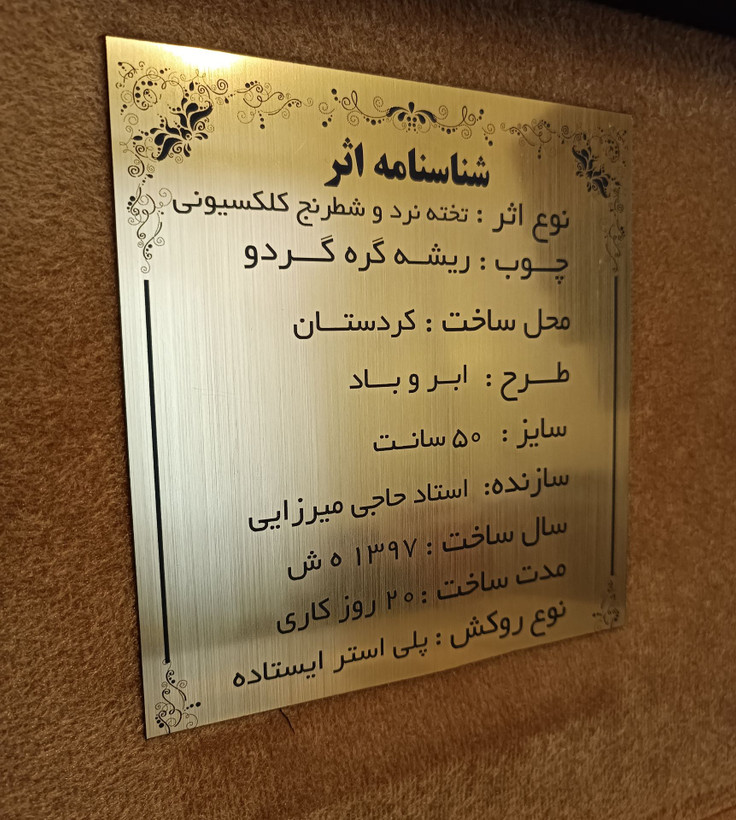 شناسنامه اثر
نوع اثر : تخته نرد و شطرنج کلکسیونی
چـوب : ریشـه گره گـردو
محل ساخت : کردستـان
طـرح : ابـر و بـاد
سایز : ۵۰ سانـت
سازنده: استاد حاجی میرزایی
سال ساخت : ۱۳۹۷ ه ش
مدت ساخت : ۲۰ روز کاری
نوع روکش : پلی استر ایستاده